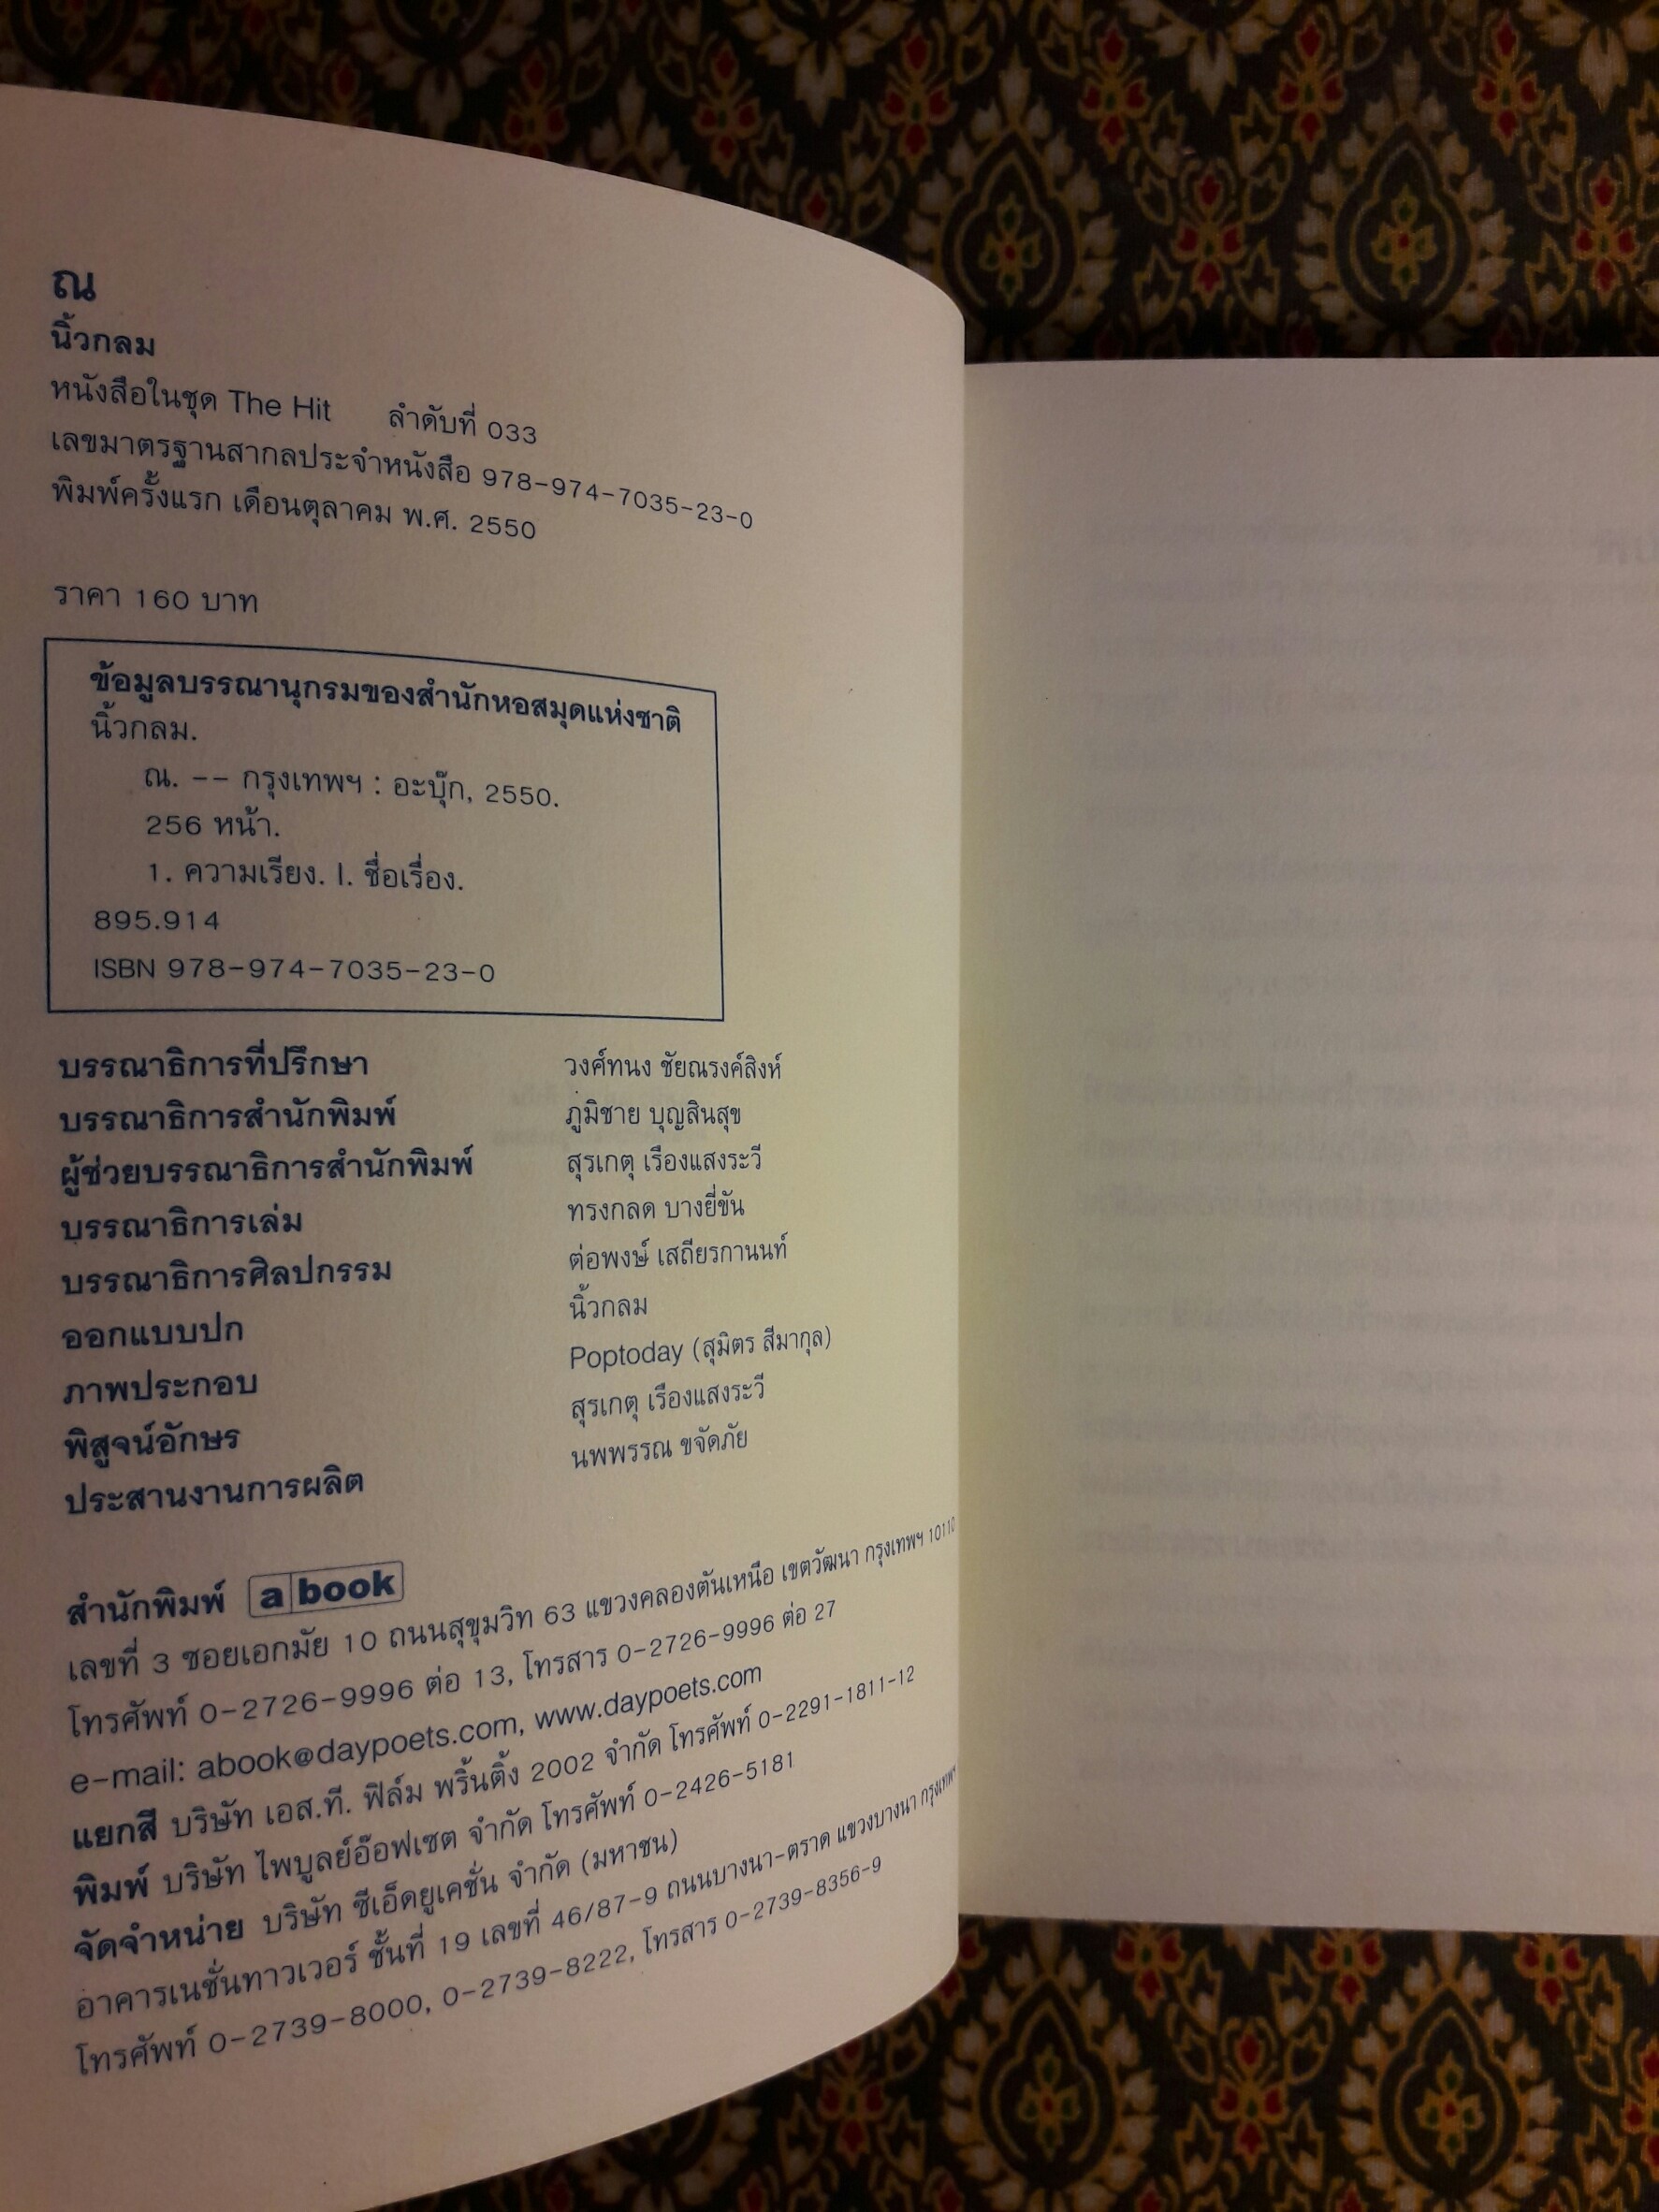 ณ
นิ้วกลม
หนังสือในชุด The Hit ลำดับที่ 033
เลขมาตรฐานสากลประจำหนังสือ 978-974-7035-23-0
พิมพ์ครั้งแรก เดือนตุลาคม พ.ศ. 2550
ราคา 160 บาท
ข้อมูลบรรณานุกรมของสำนักหอสมุดแห่งชาติ
นิ้วกลม.
ณ. -- กรุงเทพฯ : อะบุ๊ก, 2550.
256 หน้า.
1. ความเรียง. I. ชื่อเรื่อง.
895.914
ISBN 978-974-7035-23-0
บรรณาธิการที่ปรึกษา วงศ์ทนง ชัยณรงค์สิงห์
บรรณาธิการสำนักพิมพ์ ภูมิชาย บุญสินสุข
ผู้ช่วยบรรณาธิการสำนักพิมพ์ สุรเกตุ เรืองแสงระวี
บรรณาธิการเล่ม ทรงกลด บางยี่ขัน
บรรณาธิการศิลปกรรม ต่อพงษ์ เสถียรกานนท์
ออกแบบปก นิ้วกลม
ภาพประกอบ Poptoday (สุมิตร สีมากุล)
พิสูจน์อักษร สุรเกตุ เรืองแสงระวี
ประสานงานการผลิต นพพรรณ ขจัดภัย
สำนักพิมพ์ a book
เลขที่ 3 ซอยเอกมัย 10 ถนนสุขุมวิท 63 แขวงคลองตันเหนือ เขตวัฒนา กรุงเทพฯ 10110
โทรศัพท์ 0-2726-9996 ต่อ 13, โทรสาร 0-2726-9996 ต่อ 27
e-mail: abook@daypoets.com, www.daypoets.com
แยกสี บริษัท เอส.ที. ฟิล์ม พริ้นติ้ง 2002 จำกัด โทรศัพท์ 0-2291-1811-12
พิมพ์ บริษัท ไพบูลย์อ๊อฟเซต จำกัด โทรศัพท์ 0-2426-5181
จัดจำหน่าย บริษัท ซีเอ็ดยูเคชั่น จำกัด (มหาชน)
อาคารเนชั่นทาวเวอร์ ชั้นที่ 19 เลขที่ 46/87-9 ถนนบางนา-ตราด แขวงบางนา กรุงเทพฯ
โทรศัพท์ 0-2739-8000, 0-2739-8222, โทรสาร 0-2739-8356-9